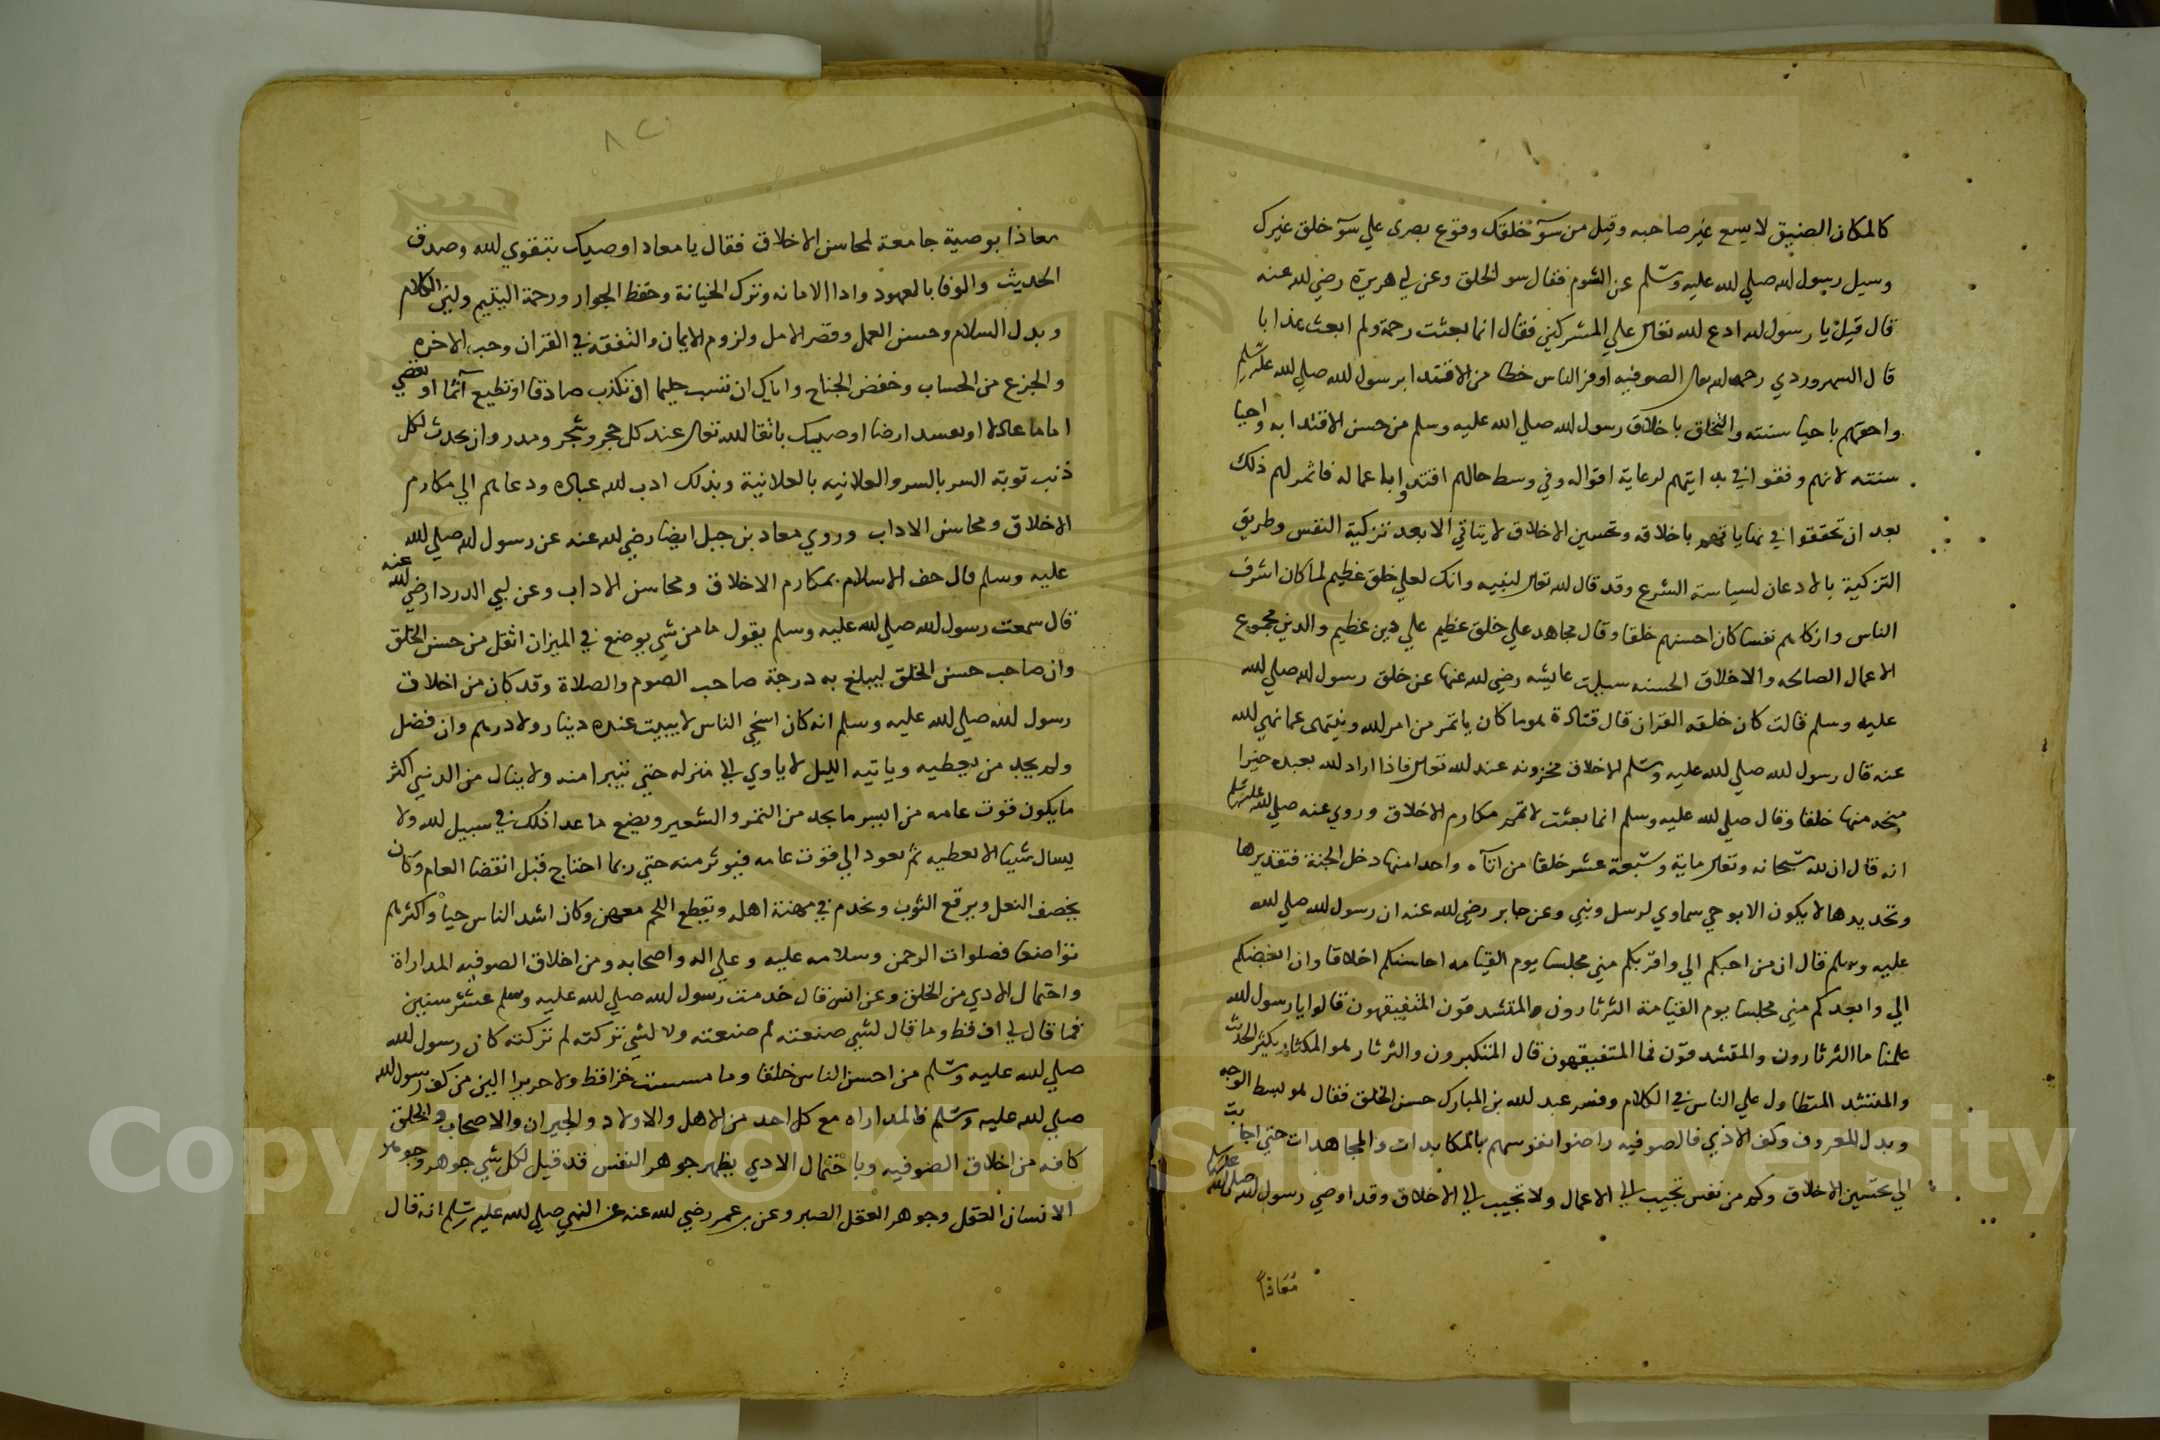 كالمكان الضيق لا يسع غير صاحبه وقيل من سوء خلقك وقوع بصرك علي سوء خلق غيرك
وسيل رسول الله صلي الله عليه وسلم عن الشوم فقال سو الخلق وعن ابي هريرة رضي الله عنه
قال قيل يا رسول الله ادع الله تعالى علي المشركين فقال انما بعثت رحمة ولم ابعث عذابا
قال السهروردي رحمه الله تعالى الصوفيه اوفر الناس حظا من الاقتدا برسول الله صلي الله عليه وسلم
واحقهم باحيا سنته والتخلق باخلاق رسول الله صلي الله عليه وسلم من حسن الاقتدا به واحيا
سنته لانهم وقفوا في بدايتهم لرعاية اقواله وفي وسط حالهم اقتدوا باعماله فاثمر لهم ذلك
بعد ان تحققوا في نهاياتهم باخلاقه وتحسين الاخلاق لا يتاتي الا بعد تزكية النفس وطريق
التزكية بالاذعان لسياسة الشرع وقد قال الله تعالى لنبيه وانك لعلي خلق عظيم لما كان اشرف
الناس وازكاهم نفسا كان احسنهم خلقا وقال مجاهد علي خلق عظيم علي دين عظيم والدين مجموع
الاعمال الصالحه والاخلاق الحسنه سيلت عايشه رضي الله عنها عن خلق رسول الله صلي الله
عليه وسلم قالت كان خلقه القران قال قتادة هو ما كان ياتمر من امر الله وينتهى عما نهي الله
عنه قال رسول الله صلي الله عليه وسلم الاخلاق مخزونه عند الله تعالى فاذا اراد الله بعبده خيرا
منحه منها خلقا وقال صلي الله عليه وسلم انما بعثت لاتمم مكارم الاخلاق وروي عنه صلي الله عليه وسلم
انه قال ان لله سبحانه وتعالى ماية وسبعة عشر خلقا من اتاه واحدا منها دخل الجنة فتقديرها
وتحديدها لا يكون الا بوحي سماوي لرسل ونبي وعن جابر رضي الله عنه ان رسول الله صلي الله
عليه وسلم قال ان من احبكم الي واقربكم مني مجلسا يوم القيامه احاسنكم اخلاقا وان ابغضكم
الي وابعدكم مني مجلسا يوم القيامة الثرثارون والمتشدقون المتفيقهون قالوا يا رسول الله
علمنا ما الثرثارون والمتشدقون فما المتفيقهون قال المتكبرون والثرثار هو المكثار بكثير الحديث
والمتشدق المتطاول علي الناس في الكلام وفسر عبد الله بن المبارك حسن الخلق فقال هو بسط الوجه
وبدل المعروف وكف الاذي فالصوفيه راضوا نفوسهم بالمكابدات والمجاهدات حتي اجابت
الي تحسين الاخلاق وكم من نفس تجيب الي الاعمال ولا تجيب الي الاخلاق وقد اوصي رسول الله صلي الله عليه وسلم
مُعَاذاً
معاذا بوصية جامعة لمحاسن الاخلاق فقال يا معاد اوصيك بتقوي الله وصدق
الحديث والوفا بالعهود وادا الامانه وترك الخيانة وحفظ الجوار ورحمة اليتيم ولين الكلام
وبدل السلام وحسن العمل وقصر الامل ولزوم الايمان والتفقه في القران وحب الاخره
والجزع من الحساب وخفض الجناح واياك ان تسب حليما او تكذب صادقا او تطيع آثما او تعصي
اماما عادلا او تفسد ارضا اوصيك باتقا الله تعالى عند كل حجر وشجر ومدر وان تحدث لكل
ذنب توبة السر بالسر والعلانيه بالعلانية وبذلك ادب الله عباده ودعاهم الي مكارم
الاخلاق ومحاسن الاداب وروي معاد بن جبل ايضا رضي الله عنه عن رسول الله صلي الله
عليه وسلم قال حف الاسلام بمكارم الاخلاق ومحاسن الاداب وعن ابي الدردا رضي الله عنه
قال سمعت رسول الله صلي الله عليه وسلم يقول ما من شي يوضع في الميزان اثقل من حسن الخلق
وان صاحب حسن الخلق ليبلغ به درجة صاحب الصوم والصلاة وقد كان من اخلاق
رسول الله صلي الله عليه وسلم انه كان اسخي الناس لا يبيت عنده دينار ولا درهم وان فضل
ولم يجد من يعطيه وياتيه الليل لا ياوي الي منزله حتي يتبرا منه ولا ينال من الدنيا اكثر
ما يكون قوت عامه من ايسر ما يجد من التمر والشعير ويضع ما عدا ذلك في سبيل الله ولا
يسال شيئا الا يعطيه ثم يعود الي قوت عامه فيوثر منه حتي ربما احتاج قبل انقضا العام وكان
يخصف النعل ويرقع الثوب ويخدم في مهنة اهله ويقطع اللحم معهن وكان اشد الناس حيا واكثرهم
تواضعا فصلوات الرحمن وسلامه عليه وعلي اله واصحابه ومن اخلاق الصوفيه المداراة
واحتمال الادي من الخلق وعن انس قال خدمت رسول الله صلي الله عليه وسلم عشر سنين
فما قال لي اف قط وما قال لشي صنعته لم صنعته ولا لشي تركته لم تركته كان رسول الله
صلي الله عليه وسلم من احسن الناس خلقا وما مسست خزا قط ولا حريرا الين من كف رسول الله
صلي الله عليه وسلم فالمداراه مع كل احد من الاهل والاولاد والجيران والاصحاب والخلق
كافه من اخلاق الصوفيه وباحتمال الادي يظهر جوهر النفس قد قيل لكل شي جوهر وجوهر
الانسان العقل وجوهر العقل الصبر وعن بن عمر رضي الله عنه عن النبي صلي الله عليه وسلم انه قال
Copyright © King Saud University